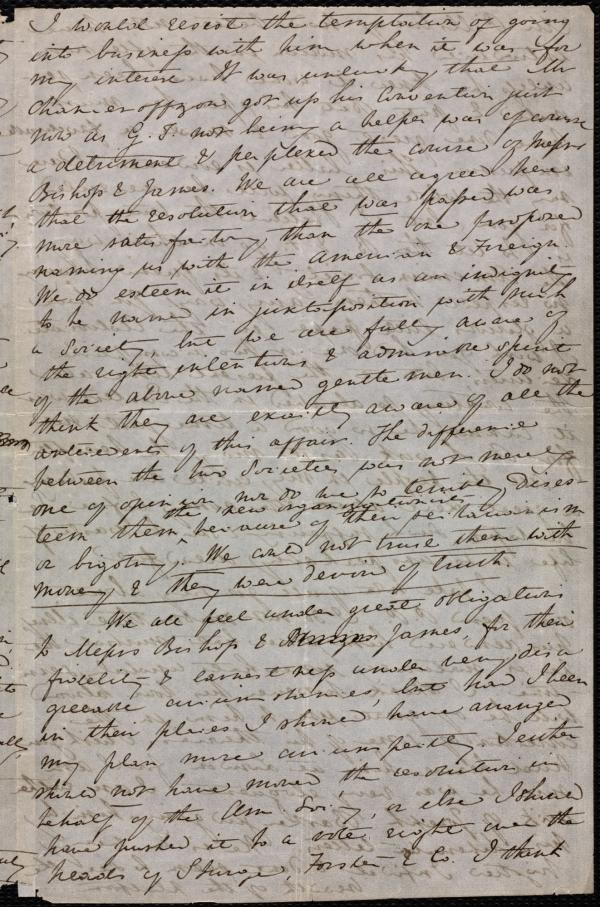 I would resist the temptation of going
into business with him when it was for
my interest It was unlucky that Mr
Chamerovzow got up his Convention just
now as G. T. not being a helper was of course
a detriment & perplexed the course of Messrs
Bishop & James. We are all agreed here
that the resolution that was passed was
more satisfactory than the one proposed
naming us with the American & Foreign
We do esteem it in itself as an indignity
to be named in juxtaposition with such
a Society, but we are fully aware of
the right intentions & admirable spirit
of the above named gentlemen. I do not
think they are exactly aware of all the
antecedents of this affair. The difference
between the two Societies was not merely
one of opinion nor do we so terribly dises-
teem them, the new organizationists because of their sectarianism
or bigotry. We could not trust them with
money & they were devoid of truth
We all feel under great obligations
to Messrs Bishop & James, for their
fidelity & earnestness under very disa
greeable circumstances, but had I been
in their places I should have arranged
my plan more circumspectly I either
should not have moved the resolution in
behalf of the Am. Socy, or else I should
have pushed it to a vote right over the
heads of Sturge, Forster & Co. I think